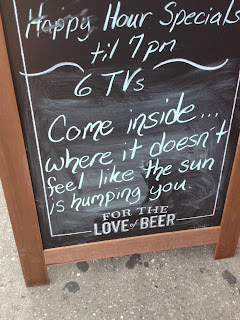 Happy Hour Specials
til 7pm
6 TVs
Come inside...
where it doesn't
feel like the sun
is humping you.
FOR THE
LOVE of BEER